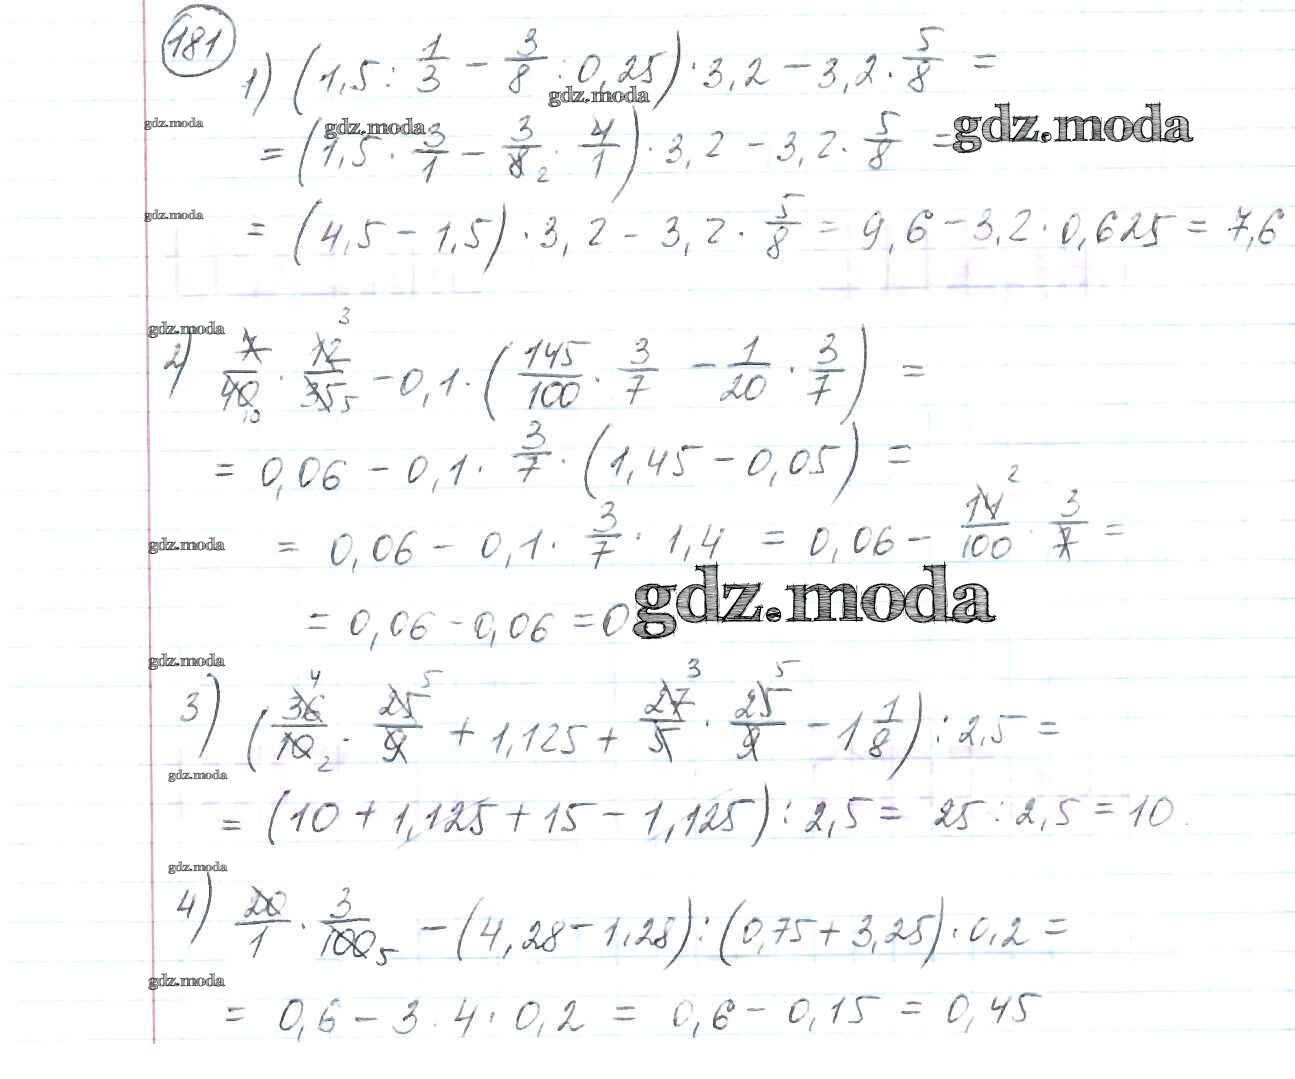 181
1) (1,5 : 1/3 − 3/8 : 0,25) · 3,2 − 3,2 · 5/8 =
gdz.moda
gdz.moda gdz.moda gdz.moda
= (1,5 · 3/1 − 3/8 2 · 4/1) · 3,2 − 3,2 · 5/8 =
gdz.moda
= (4,5 − 1,5) · 3,2 − 3,2 · 5/8 = 9,6 − 3,2 · 0,625 = 7,6
gdz.moda
2) 7/40 10 · 12 3/35 5 − 0,1 · (145/100 · 3/7 − 1/20 · 3/7) =
= 0,06 − 0,1 · 3/7 · (1,45 − 0,05) =
gdz.moda
= 0,06 − 0,1 · 3/7 · 1,4 = 0,06 − 14 2/100 · 3/7 =
= 0,06 − 0,06 = 0 gdz.moda
gdz.moda
3) (36 4/10 2 · 25 5/9 + 1,125 + 27 3/5 · 25 5/9 − 1 1/8) : 2,5 =
gdz.moda
= (10 + 1,125 + 15 − 1,125) : 2,5 = 25 : 2,5 = 10.
gdz.moda
4) 20/1 · 3/100 5 − (4,28 − 1,28) : (0,75 + 3,25) · 0,2 =
gdz.moda
= 0,6 − 3 : 4 · 0,2 = 0,6 − 0,15 = 0,45